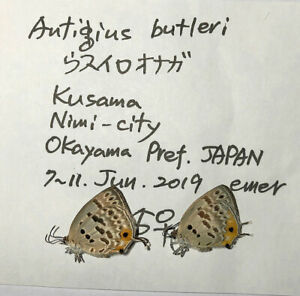 Antigius butleri
ウスイロオナガ
Kusama
Nimi-city
Okayama Pref. JAPAN
7~11. Jun. 2019 emer